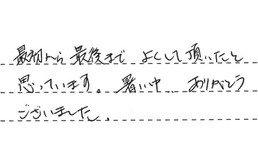 最初から最後まで よくして頂いたと
思っています。暑い中 ありがとう
ございました。